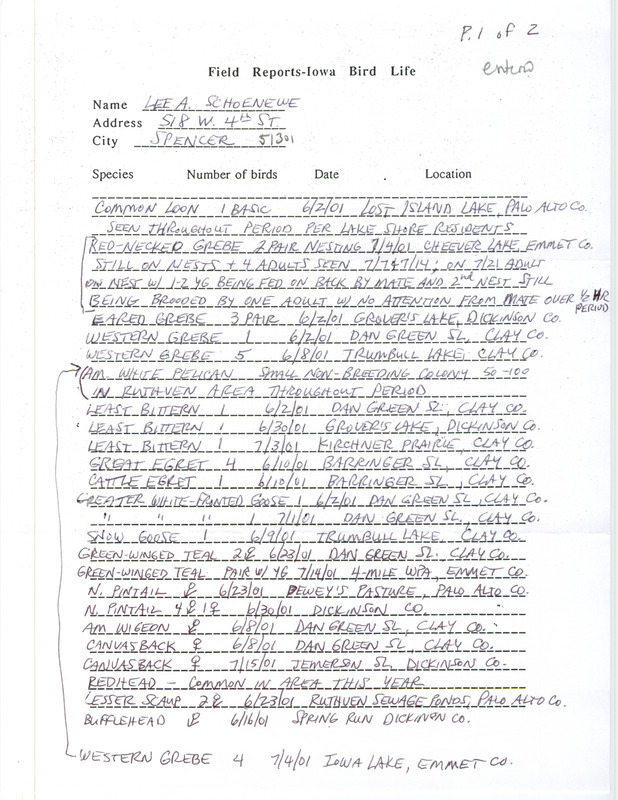 P.1 of 2
Field Reports-Iowa Bird Life
Name LEE A. SCHOENEWE
Address 518 W. 4th ST.
City SPENCER 51301
Species Number of birds Date Location
COMMON LOON 1 BASIC 6/2/01 LOST ISLAND LAKE, PALO ALTO CO.
SEEN THROUGHOUT PERIOD PER LAKE SHORE RESIDENTS
RED-NECKED GREBE 2 PAIR NESTING 7/4/01 CHEEVER LAKE, EMMET CO.
STILL ON NESTS + 4 ADULTS SEEN 7/7+7/14; ON 7/21 ADULT
ON NEST W/ 1-2 YG BEING FED ON BACK BY MATE AND 2nd NEST STILL
BEING BROODED BY ONE ADULT W/ NO ATTENTION FROM MATE OVER 1/2 HR PERIOD
EARED GREBE 3 PAIR 6/2/01 GROVER'S LAKE, DICKINSON CO.
WESTERN GREBE 1 6/2/01 DAN GREEN SL, CLAY CO.
WESTERN GREBE 5 6/8/01 TRUMBULL LAKE, CLAY CO.
AM. WHITE PELICAN SMALL NON-BREEDING COLONY 50-100
IN RUTHVEN AREA THROUGHOUT PERIOD
LEAST BITTERN 1 6/2/01 DAN GREEN SL., CLAY CO.
LEAST BITTERN 1 6/30/01 GROVER'S LAKE, DICKINSON CO.
LEAST BITTERN 1 7/3/01 KIRCHNER PRAIRIE, CLAY CO.
GREAT EGRET 4 6/10/01 BARRINGER SL, CLAY CO.
CATTLE EGRET 1 6/10/01 BARRINGER SL, CLAY CO.
GREATER WHITE-FRONTED GOOSE 1 6/2/01 DAN GREEN SL, CLAY CO.
" " " 1 7/1/01 DAN GREEN SL, CLAY CO.
SNOW GOOSE 1 6/9/01 TRUMBULL LAKE, CLAY CO.
GREEN-WINGED TEAL 2♂ 6/23/01 DAN GREEN SL. CLAY CO.
GREEN-WINGED TEAL PAIR W/ YG 7/14/01 4-MILE WPA, EMMET CO.
N. PINTAIL ♂ 6/23/01 DEWEY'S PASTURE, PALO ALTO CO.
N. PINTAIL 4♂ 1♀ 6/30/01 DICKINSON CO
AM WIGEON ♂ 6/8/01 DAN GREEN SL, CLAY CO.
CANVASBACK ♀ 6/8/01 DAN GREEN SL, CLAY CO.
CANVASBACK ♀ 7/15/01 JEMERSON SL, DICKINSON CO.
REDHEAD - COMMON IN AREA THIS YEAR
LESSER SCAUP 2♂ 6/23/01 RUTHVEN SEWAGE PONDS, PALO ALTO CO.
BUFFLEHEAD ♂ 6/16/01 SPRING RUN DICKINSON CO.
WESTERN GREBE 4 7/4/01 IOWA LAKE, EMMET CO.